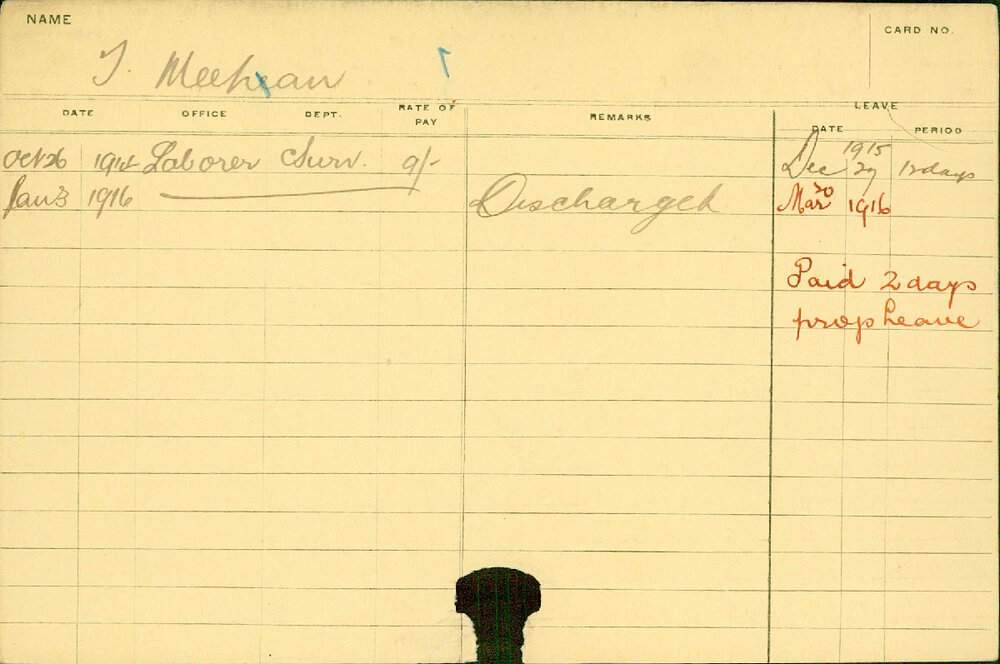 NAME
CARD NO.
T. Meehan
DATE OFFICE DEPT. RATE OF PAY REMARKS LEAVE
DATE PERIOD
Oct 26 1914 Laborer Surv. 9/- Dec 29 1915 12 days
Jan 3 1916 Discharged Mar 30 1916
Paid 2 days
prop Leave